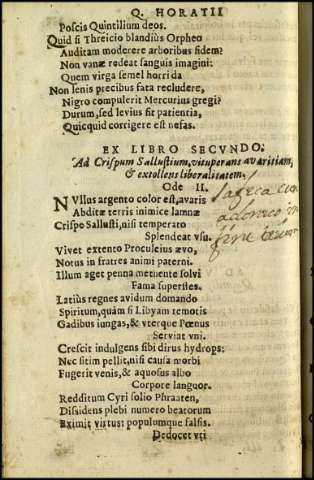 Q. HORATII
Poscis Quintilium deos.
Quid si Threicio blandius Orpheo
Auditam moderere arboribus fidem?
Non vanæ redeat sanguis imagini:
Quem virga semel horrida
Non lenis precibus fata recludere,
Nigro compulerit Mercurius gregi?
Durum, sed levius fit patientia,
Quicquid corrigere est nefas.
EX LIBRO SECVNDO.
Ad Crispum Sallustium, vituperans avaritiam,
& extollens liberalitatem.
Ode II.
NVllus argento color est, avaris
Abditæ terris inimice lamnæ
Crispo Sallusti, nisi temperato
Splendeat vsu.
Vivet extento Proculeius ævo,
Notus in fratres animi paterni.
Illum aget penna metuente solvi
Fama superstes.
Latiùs regnes avidum domando
Spiritum, quàm si Libyam remotis
Gadibus iungas, & vterque Pœnus
Serviat vni.
Crescit indulgens sibi dirus hydrops:
Nec sitim pellit, nisi causa morbi
Fugerit venis, & aquosus albo
Corpore languor.
Redditum Cyri solio Phraaten,
Dissidens plebi numero beatorum
Eximit virtus: populumque falsis.
Dedocet vti